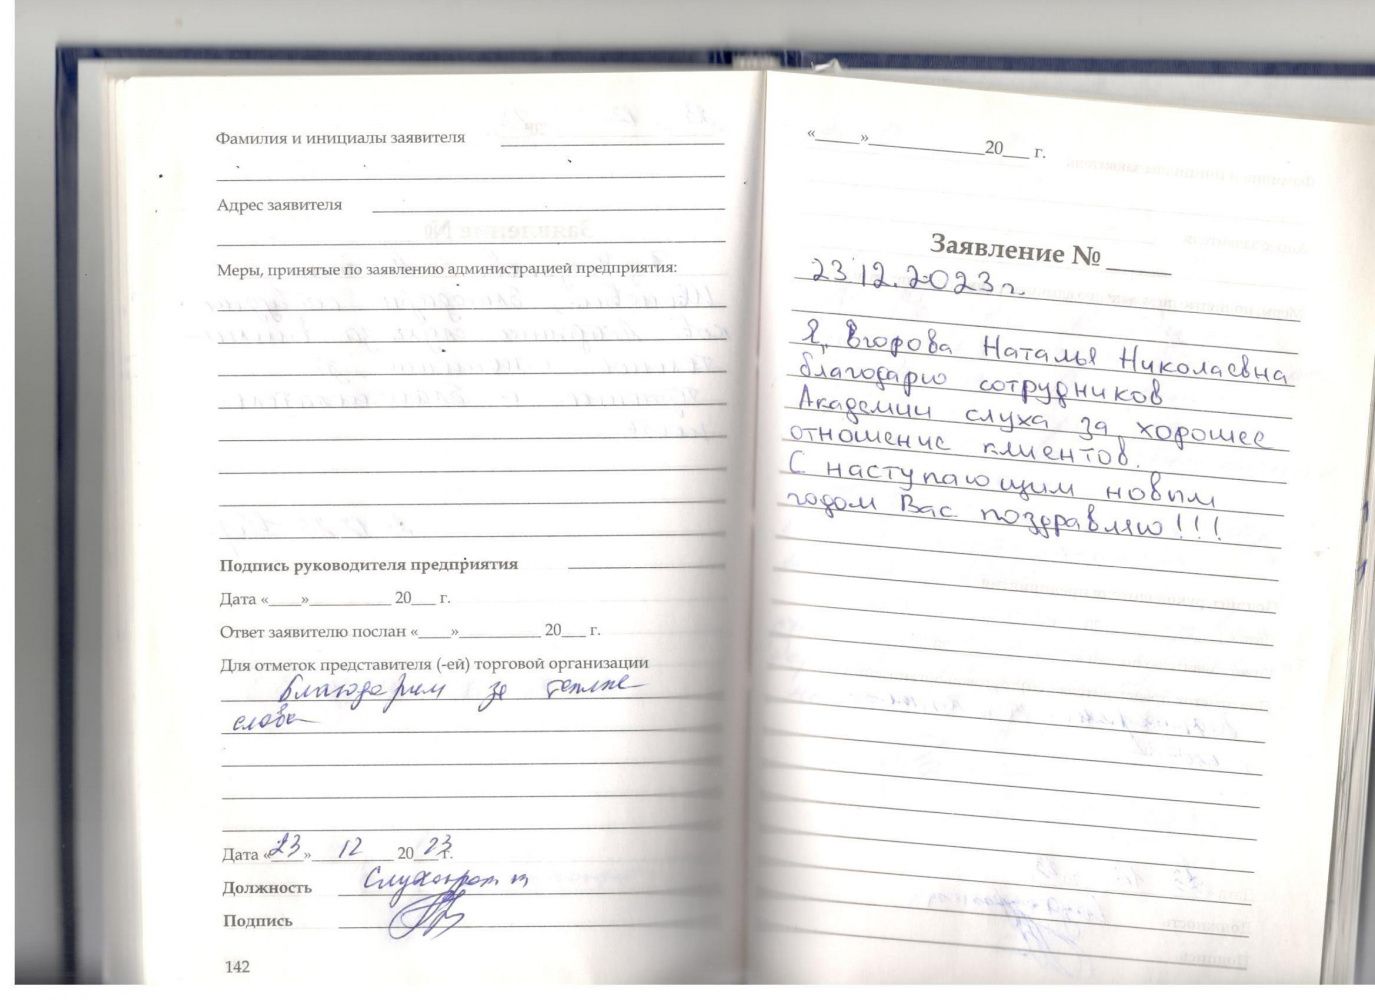 Фамилия и инициалы заявителя
Адрес заявителя
Меры, принятые по заявлению администрацией предприятия:
Подпись руководителя предприятия
Дата «____»__________ 20___ г.
Ответ заявителю послан «____»__________ 20___ г.
Для отметок представителя (-ей) торговой организации
Благодарим за теплые
слова
Дата «23» 12 2023 г.
Должность
Подпись
142
«_____»______________20___ г.
Заявление № _____
23 12.2023 г.
Я, Егорова Наталья Николаевна
благодарю сотрудников
Академии слуха за хорошее
отношение клиентов.
С наступающим новым
годом Вас поздравляю!!!